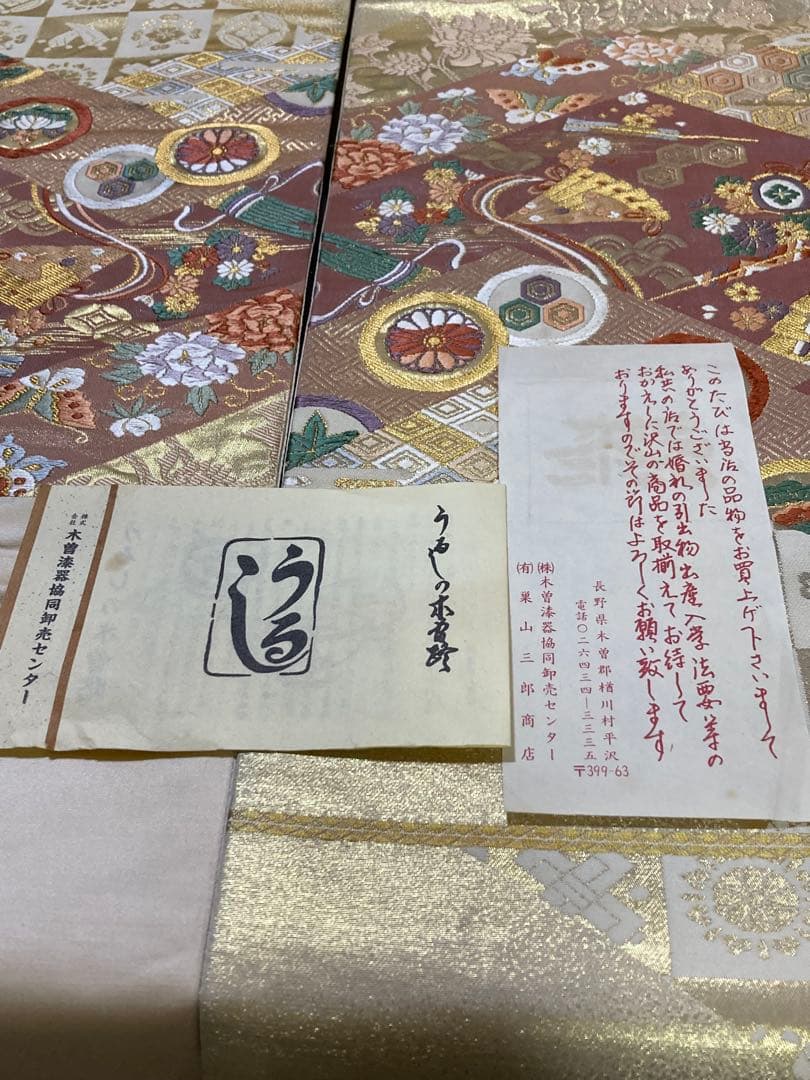 このたびは当店の品物をお買上げ下さいまして
ありがとうございました
私共の店では婚礼の引出物出産入学法要等の
おかえしに沢山の商品を取揃えてお待して
おりますのでその節はよろしくお願い致します
長野県木曽郡楢川村平沢
電話〇二六四三四ー三三三五
(株)木曽漆器協同卸売センター
(有)巣山三郎商店
〒399-63
うるしの木曽路
うるし
株式会社 木曽漆器協同卸売センター